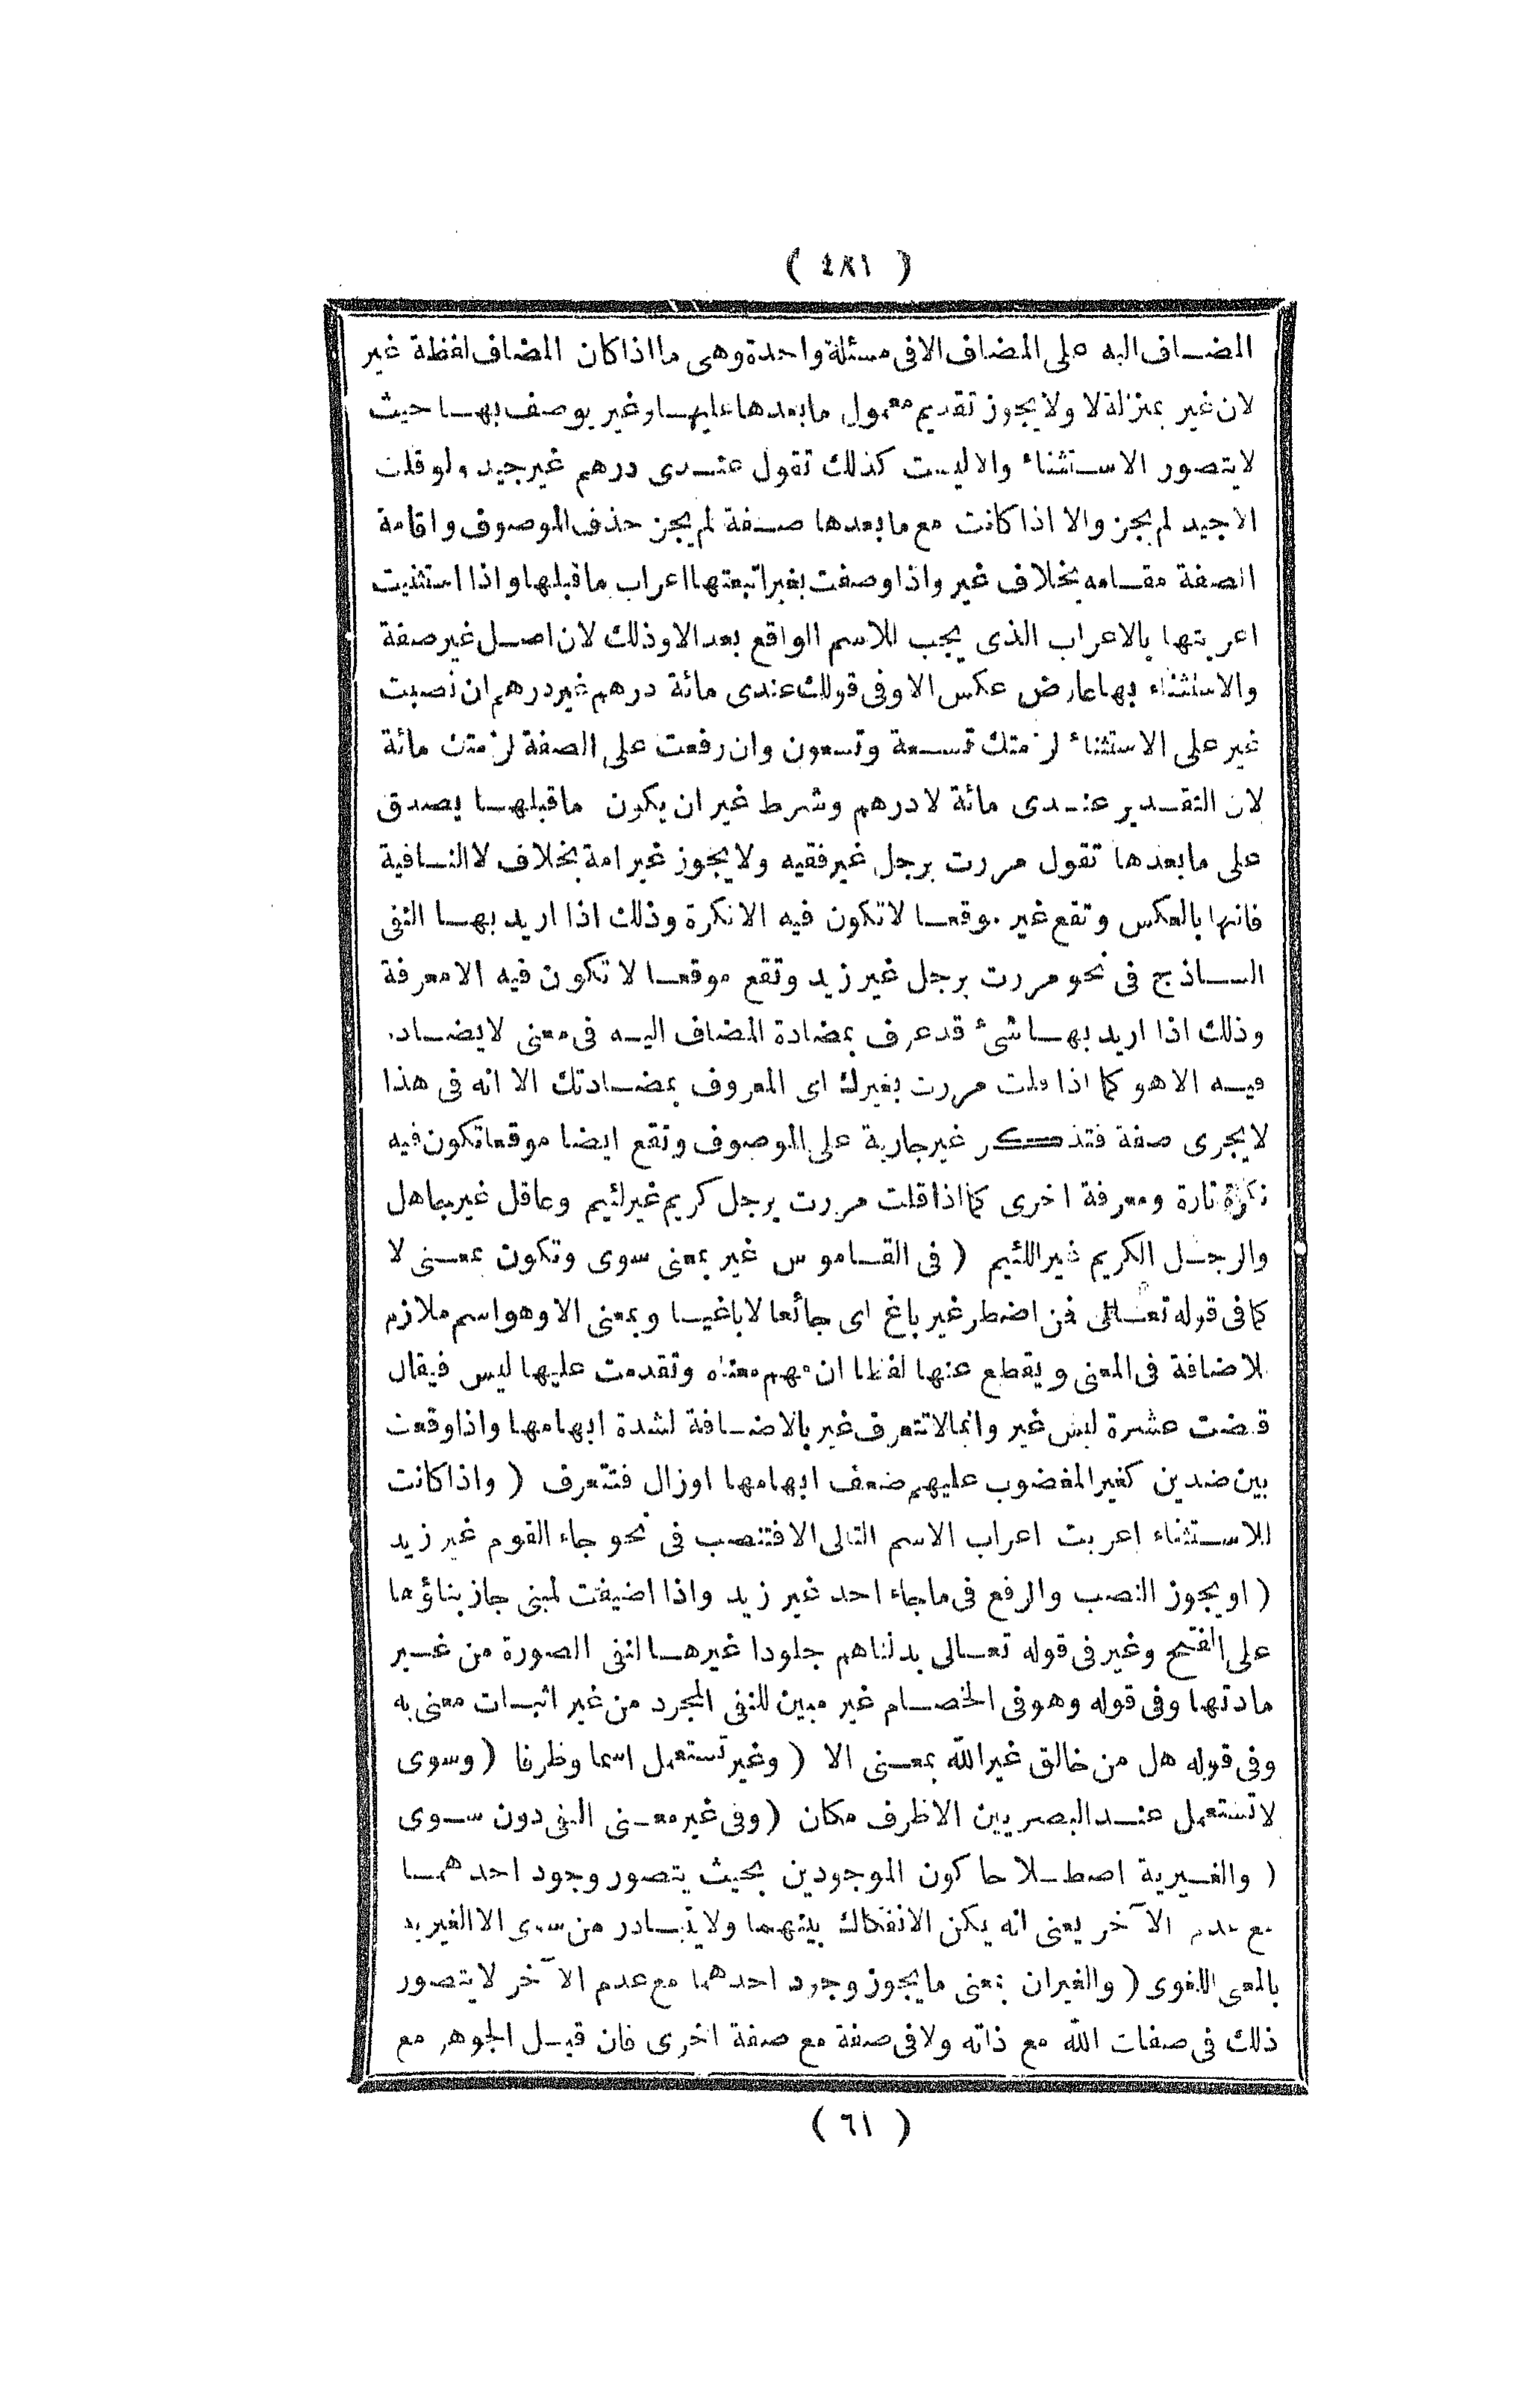 ( ٤٨١ )
المضاف اليه على المضاف الا فى مسئلة واحدة وهى ما اذا كان المضاف لفظة غير
لان غير بمنزلة لا ولا يجوز تقديم معمول ما بعدها عليها وغير يوصف بها حيث
لا يتصور الاستثناء والا ليست كذلك تقول عندى درهم غير جيد ولو قلت
الا جيد لم يجز والا اذا كانت مع ما بعدها صفة لم يجز حذف الموصوف واقامة
الصفة مقامه بخلاف غير واذا وصفت بغير اتبعتها اعراب ما قبلها واذا استثنيت
اعربتها بالاعراب الذى يجب للاسم الواقع بعد الا وذلك لان اصل غير صفة
والاستثناء بها عارض عكس الا وفى قولك عندى مائة درهم غير درهم ان نصبت
غير على الاستثناء لزمتك تسعة وتسعون وان رفعت على الصفة لزمتك مائة
لان التقدير عندى مائة لا درهم وشرط غير ان يكون ما قبلها يصدق
على ما بعدها تقول مررت برجل غير فقيه ولا يجوز غير امة بخلاف لا النافية
فانها بالعكس وتقع غير موقعا لا تكون فيه الا نكرة وذلك اذا اريد بها النفى
الساذج فى نحو مررت برجل غير زيد وتقع موقعا لا تكون فيه الا معرفة
وذلك اذا اريد بها شئ قد عرف بمضادة المضاف اليه فى معنى لا يضاده
فيه الا هو كما اذا قلت مررت بغيرك اى المعروف بمضادتك الا انه فى هذا
لا يجرى صفة فتذكر غير جارية على الموصوف وتقع ايضا موقعا تكون فيه
نكرة تارة ومعرفة اخرى كما اذا قلت مررت برجل كريم غير لئيم وعاقل غير جاهل
والرجل الكريم غير اللئيم ( فى القاموس غير بمعنى سوى وتكون بمعنى لا
كما فى قوله تعالى فمن اضطر غير باغ اى جائعا لا باغيا وبمعنى الا وهو اسم ملازم
للاضافة فى المعنى ويقطع عنها لفظا ان فهم معناه وتقدمت عليها ليس فيقال
قبضت عشرة ليس غير وانما لا تتعرف غير بالاضافة لشدة ابهامها واذا وقعت
بين ضدين كغير المغضوب عليهم ضعف ابهامها او زال فتتعرف ( واذا كانت
للاستثناء اعربت اعراب الاسم التالى الا فتنصب فى نحو جاء القوم غير زيد
( او يجوز النصب والرفع فى ما جاء احد غير زيد واذا اضيفت لمبنى جاز بناؤها
على الفتح وغير فى قوله تعالى بدلناهم جلودا غيرها لنفى الصورة من غير
مادتها وفى قوله وهو فى الخصام غير مبين للنفى المجرد من غير اثبات معنى به
وفى قوله هل من خالق غير الله بمعنى الا ( وغير تستعمل اسما وظرفا ( وسوى
لا تستعمل عند البصريين الا ظرف مكان ( وفى غير معنى النفى دون سوى
( والغيرية اصطلاحا كون الموجودين بحيث يتصور وجود احدهما
مع عدم الآخر يعنى انه يمكن الانفكاك بينهما ولا يتبادر من سوى الا الغيرية
بالمعنى اللغوى ( والغيران بمعنى ما يجوز وجود احدهما مع عدم الآخر لا يتصور
ذلك فى صفات الله مع ذاته ولا فى صفة مع صفة اخرى فان قيل الجوهر مع
( ٦١ )